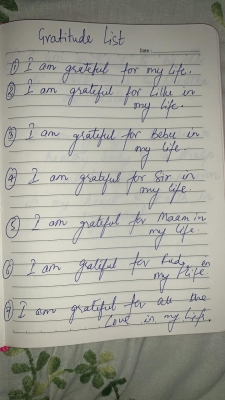 Gratitude List
Date :
① I am grateful for my life.
② I am grateful for Lilke in
my life.
③ I am grateful for Bebu in
my life.
④ I am grateful for Sir in
my life.
⑤ I am grateful for Maam in
my life.
⑥ I am grateful for in
my life
⑦ I am grateful for all the
love in my life.